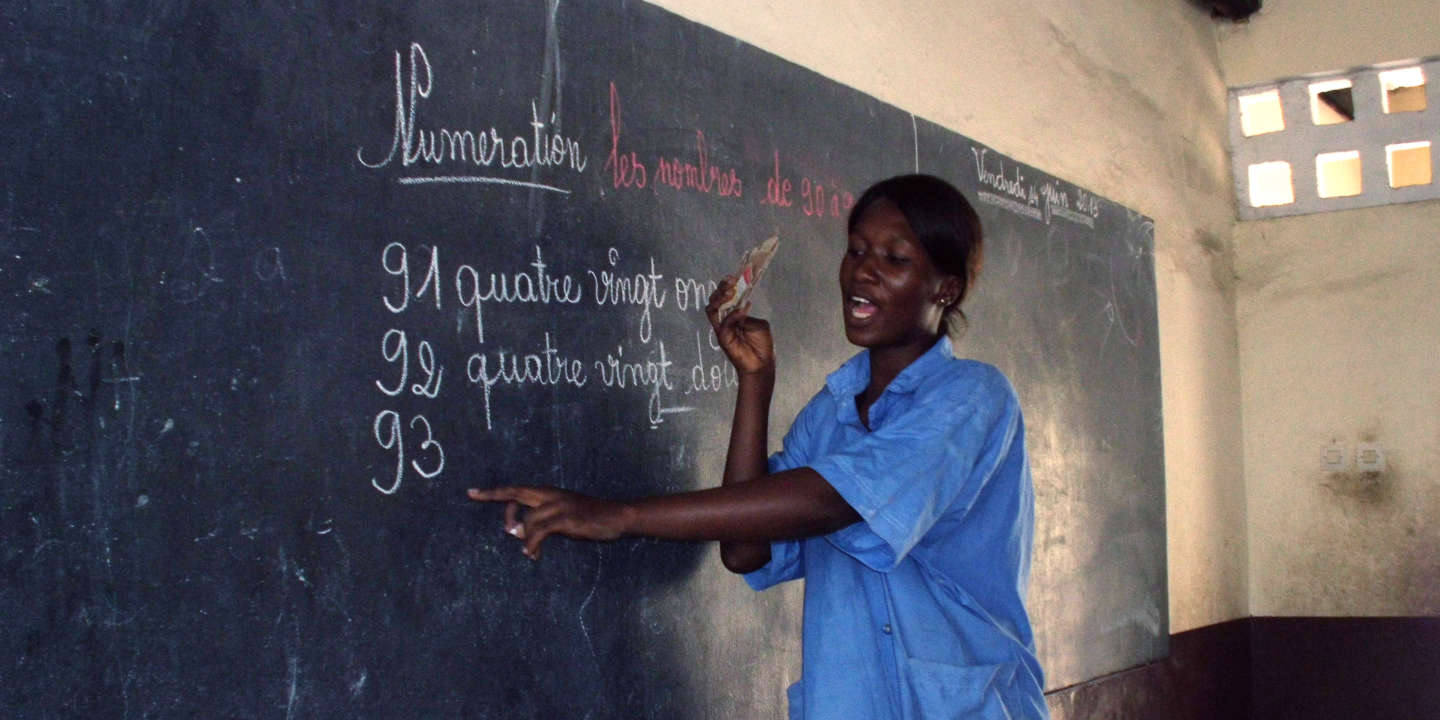 Numeration les nombres de 90 à 9
Vendredi 14 juin 2013
91 quatre vingt onz
92 quatre vingt dou
93